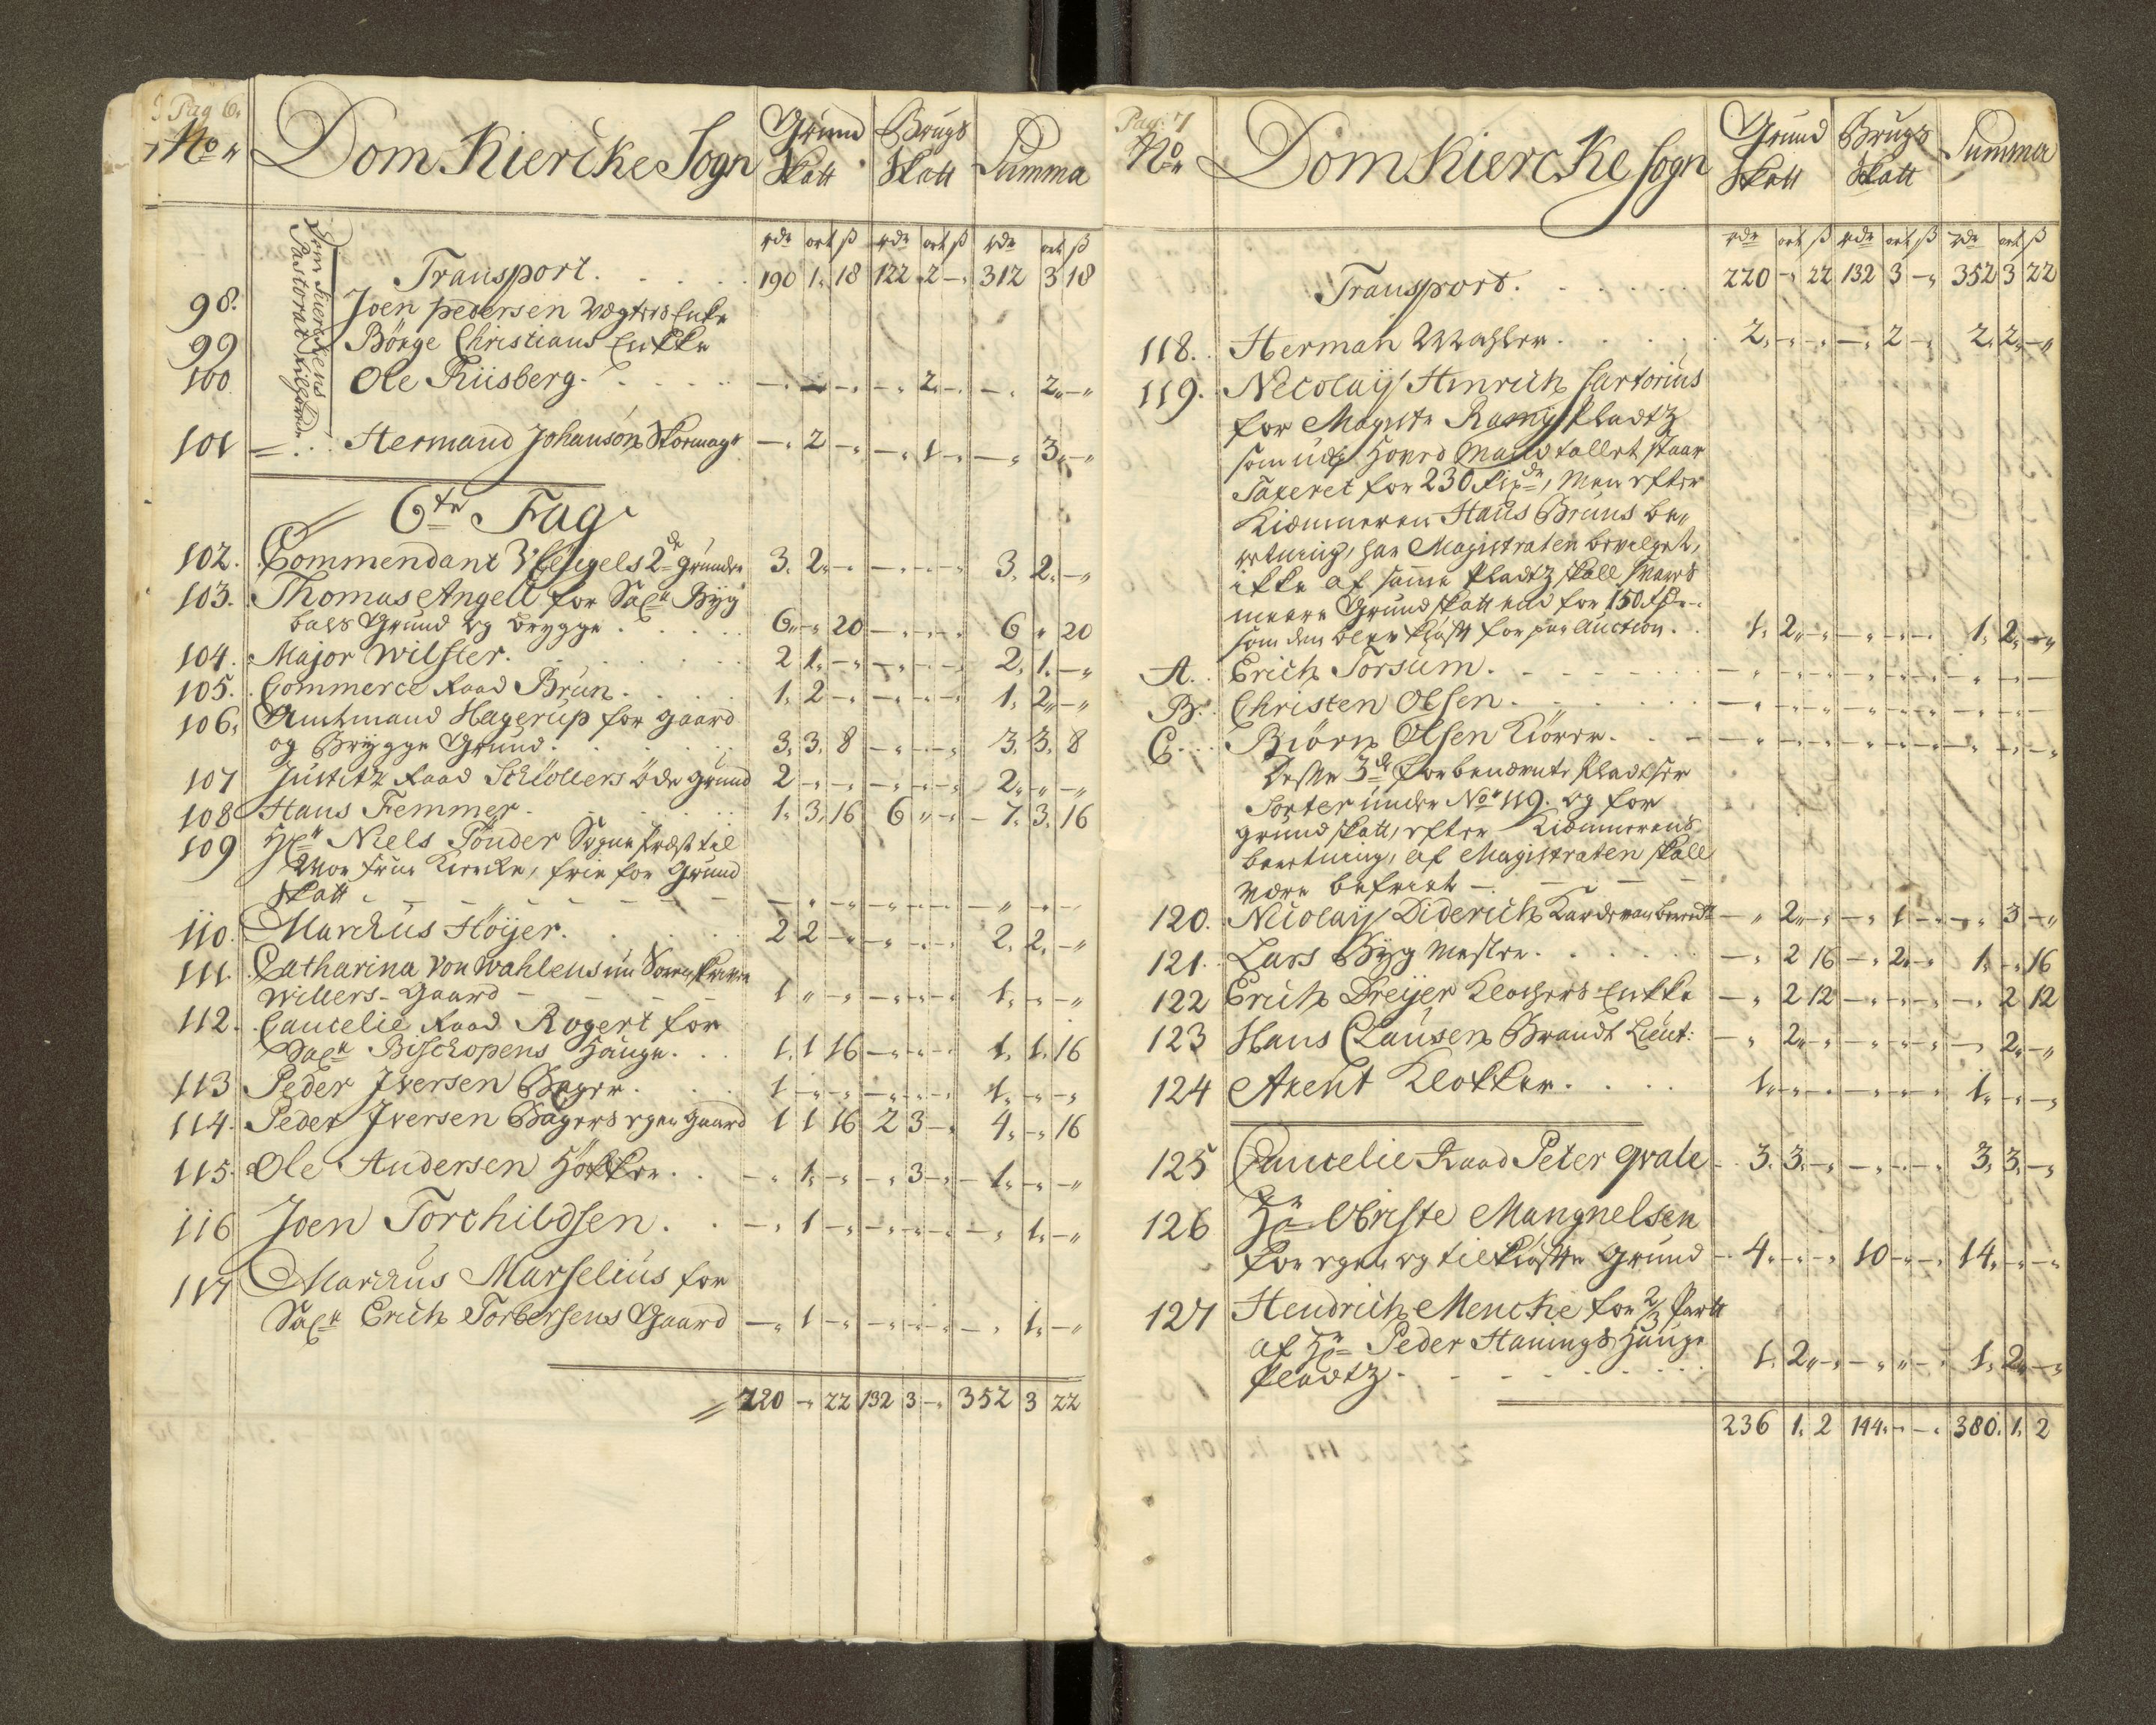 Pag 6.
No Dom Kiercke Sogn Grund Skatt Brugs Skatt Summa
rdr ort ß rdr ort ß rdr ort ß
Transport. 190 1. 18 122 2 - 312 3 18
Frue Kierckens Pastorat tilhører
98. Joen pedersen Vægters Enke
99 Börge Christians Enkke
100 Ole Riisberg. - - - - 2 - - 2 -
101 Hermand Johansön - 2 - - 1 - - 3 -
6te Fag
102. Commendant 2de Grunde 3. 2 - - - - 3. 2. -
103. Thomas Angell for Salr Byg
Grund og brygge 6 - 20 - - - 6 " 20
104. Major Wilster. 2 1. - - - - 2. 1. -
105. Commerce Raad Brun. 1. 2 - - - - 1. 2 -
106. Amtmand Hagerup for gaard
og Brygge Grund. 3. 3. 8 - - - 3. 3. 8
107 Justitz Raad Schiöllers öde grund 2 - - - - - 2. - -
108 Hans Femmer 1. 3. 16 6 " - 7. 3. 16
109 Hr Niels Tönder Sogne Præst til
Vor Frue Kiercke, frie for Grund
Skatt - - - - - - - - -
110. Marcus Höyer. 2 2 - - - - 2. 2. -
111. Catharina von Wahlens
Willers Gaard 1 " - - - - 1. - -
112. Cancelie Raad Rogert for
Salr Bischopens Hauge. 1. 1 16 - - - 1. 1. 16
113 Peder Iversen Bager. 1 - - - - - 1. - -
114. Peder Iversen Bagers egen gaard 1 1 16 2 3 - 4. - 16
115. Ole Andersen - 1. - - 3 - 1. - -
116 Joen Torchildsen. - 1 - - - - - 1. -
117 Marcus Marselius for
Salr Erich Torbersens Gaard - 1 - - - - - 1. -
220 - 22 132 3 - 352 3 22
Pag. 7
No Dom Kiercke sogn Grund Skatt Brugs Skatt Summa
rdr ort ß rdr ort ß rdr ort ß
Transport. 220 - 22 132 3 - 352 3 22
118. Herman Wahler. 2. - - - 2 - 2. 2. -
119. Nicolay Hinrich Sartorius
for Pladtz
som udj Mand tallet staar
Taxeret for 230 rixdr, Men efter
Kiæmneren Hans Bruns be-
retning, har Magistraten bevilget,
ikke af samme Pladtz skall svares
meere Grundskatt end for 150 rdr
som den blev kiöbt for paa Auction. 1. 2 - - - - 1. 2. -
A. Erich Forsum. - - - - - - - - -
B. Christen Olsen. - - - - - - - - -
C. Biörn Olsen Kiörer. - - - - - - - - -
Disse 3de forbenævnte Pladtser
Sorter under No 119. og for
grundskatt, efter Kiæmnerens
beretning, af Magistraten skall
være befriet -
120. Nicolay Diderich - 2 - - 1 - - 3 -
121. Lars Byg mester. - 2 16 - 2 - 1. - 16
122 Erich Dreyer Klochers Enkke - 2 12 - - - - 2 12
123 Hans Clausen Brandt Lieut: - 2 - - - - - 2 -
124 Arent Klokker. 1 - - - - - 1. - -
125 Cancelie Raad Peter Qvale 3. 3. - - - - 3. 3. -
126 Hr Obriste Mangnelsen
for egen og tilkiöbte Grund 4. - - 10 - - 14. - -
127 Hendrich Mencke for 2/3 part
af Hr Peder Hanings Hauge
pladtz. 1. 2 - - - - 1. 2 -
236 1. 2 144. - - 380. 1. 2